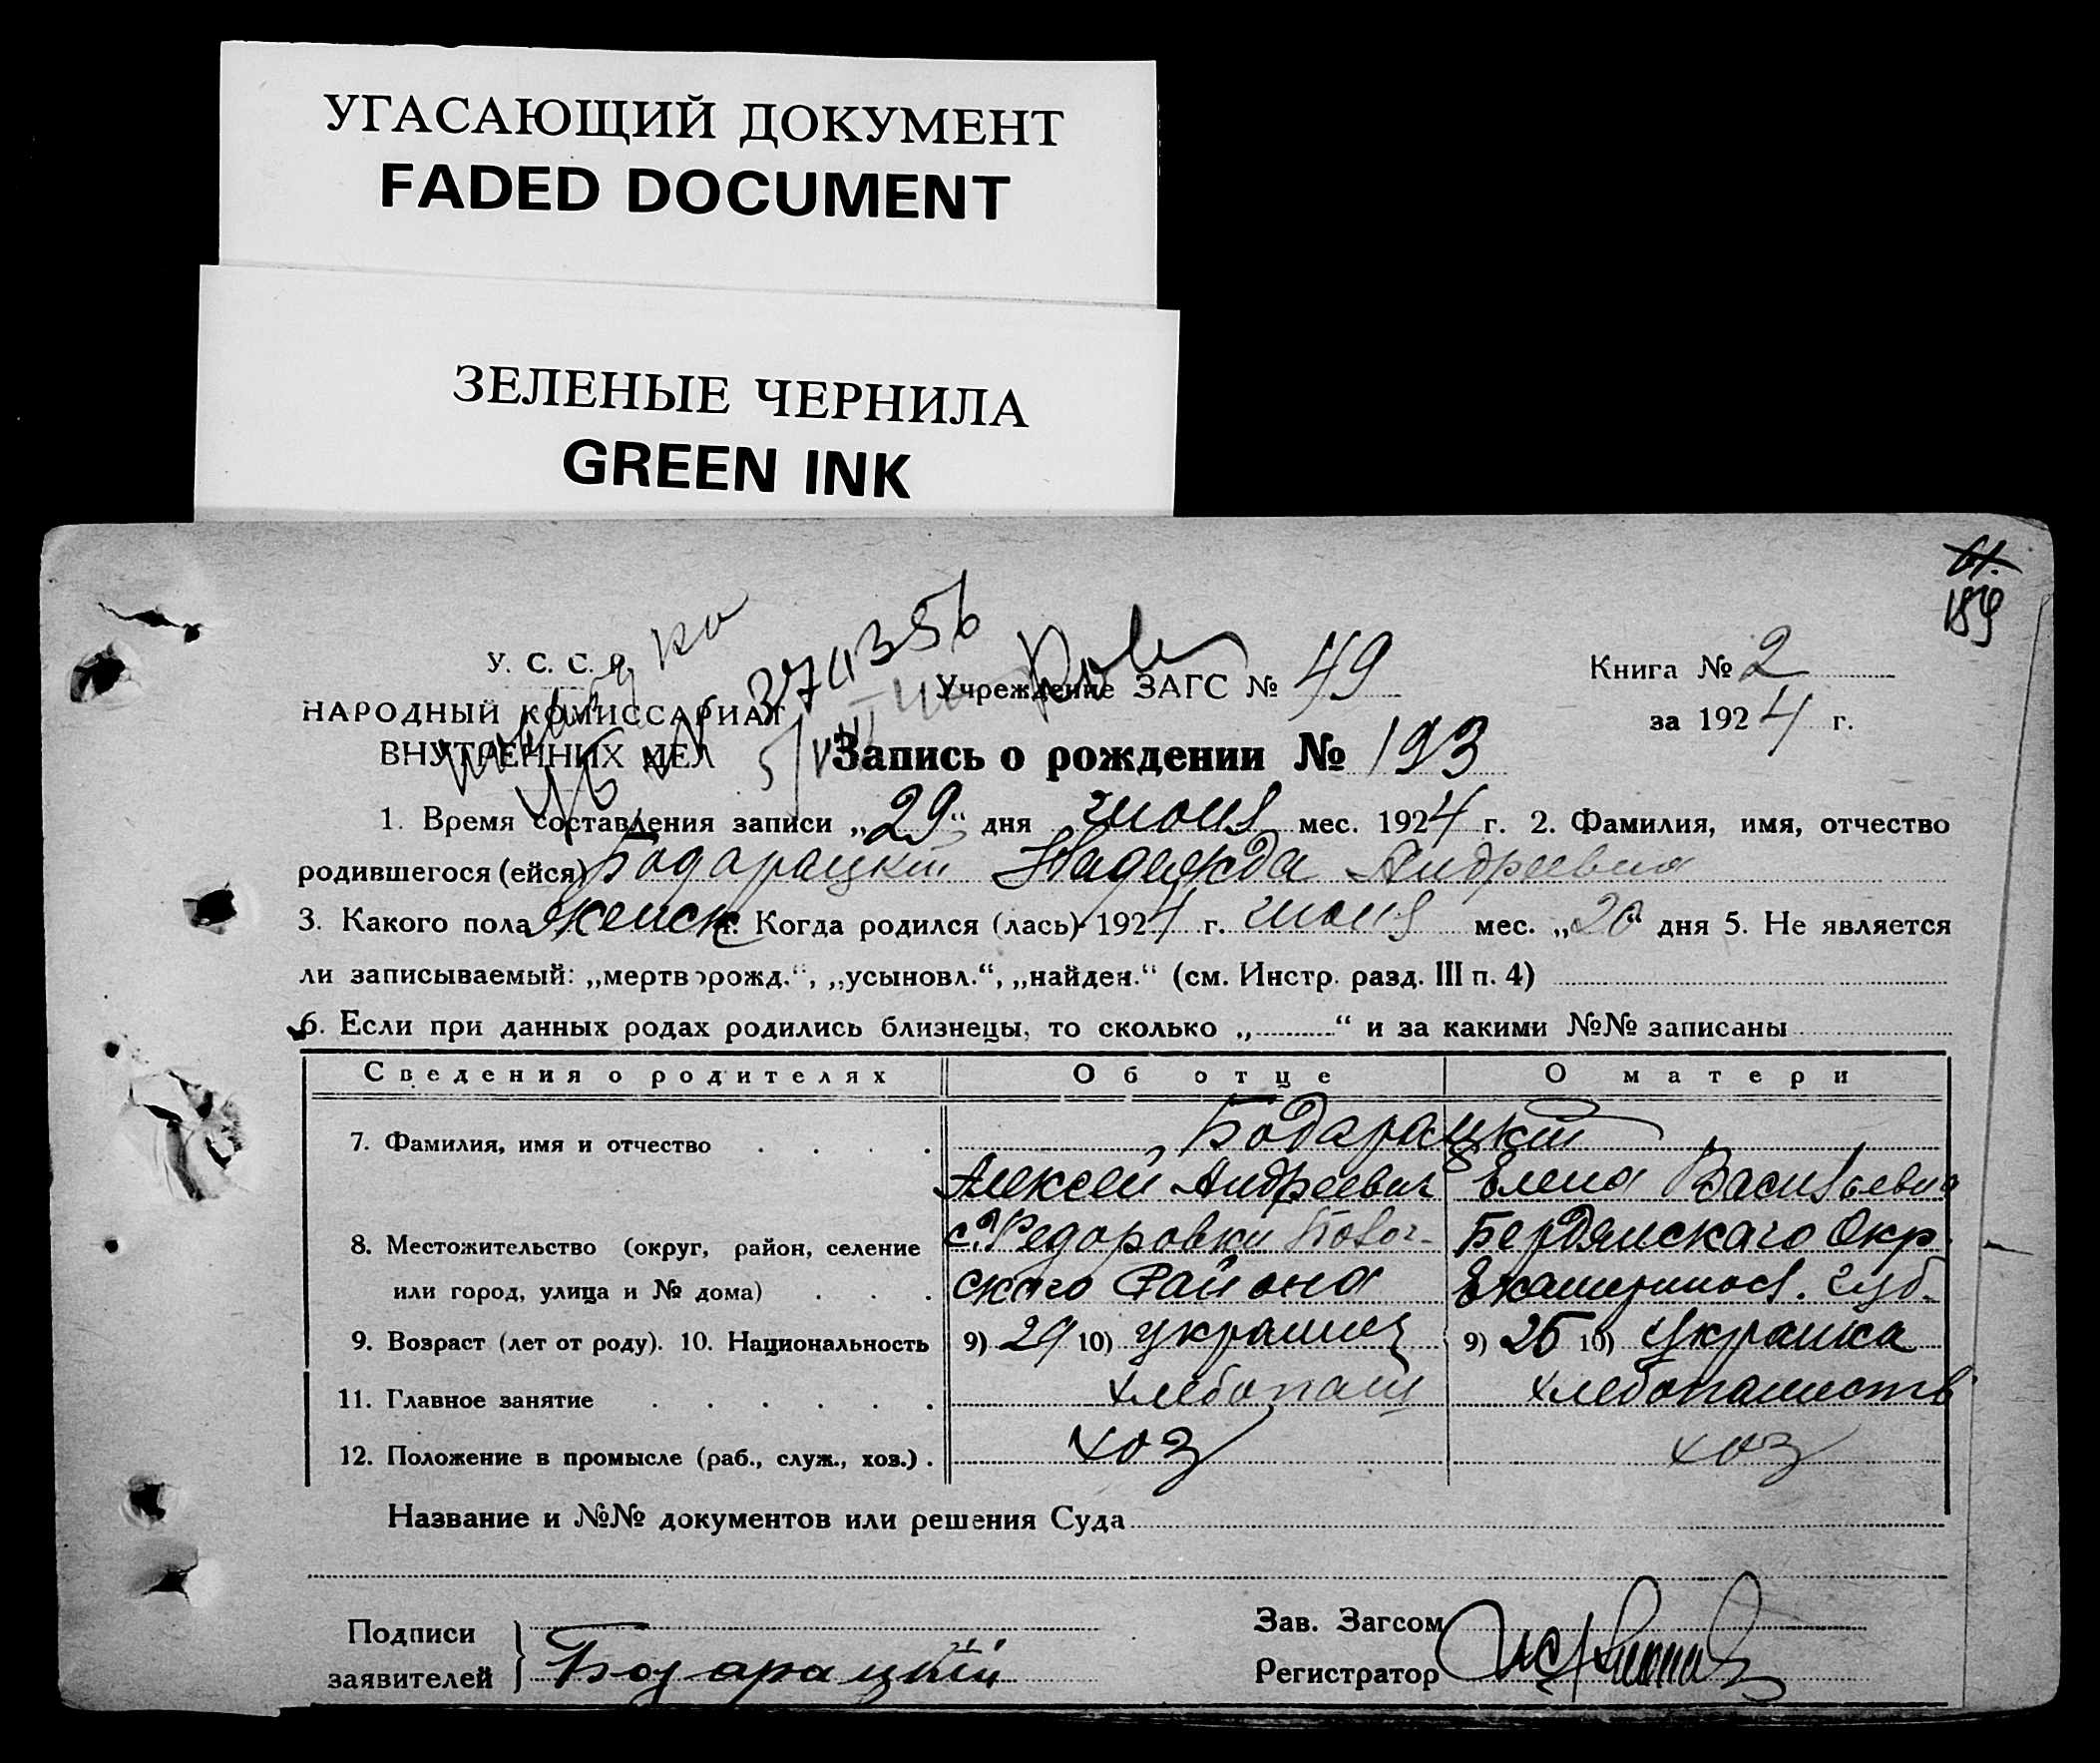 УГАСАЮЩИЙ ДОКУМЕНТ
FADED DOCUMENT
ЗЕЛЕНЫЕ ЧЕРНИЛА
GREEN INK
189
У. С. С. Р.
НАРОДНЫЙ КОМИССАРИАТ
ВНУТРЕННИХ ДЕЛ
Учреждение ЗАГС № 49
Книга № 2
за 1924 г.
Запись о рождении № 193
1. Время составления записи „29“ дня июня мес. 1924 г. 2. Фамилия, имя, отчество
родившегося (ейся) Бодарацкий Надежда Андреевна
3. Какого пола женск 4. Когда родился (лась) 1924 г. июня мес. „20“ дня 5. Не является
ли записываемый: „мертворожд.“, „усыновл.“, „найден.“ (см. Инстр. разд. III п. 4)
6. Если при данных родах родились близнецы, то сколько „ “ и за какими №№ записаны
Сведения о родителях Об отце О матери
7. Фамилия, имя и отчество Бодарацкий
Алексей Андреевич Елена Васильевна
8. Местожительство (округ, район, селение с. Федоровки Бердянскаго Окр.
или город, улица и № дома) скаго Района Екатеринос. губ.
9. Возраст (лет от роду). 10. Национальность 9) 29 10) украинец 9) 25 10) Украинка
11. Главное занятие хлебопаш хлебопашеств
12. Положение в промысле (раб., служ., хоз.) хоз хоз
Название и №№ документов или решения Суда
Подписи
заявителей Бодарацкий
Зав. Загсом
Регистратор